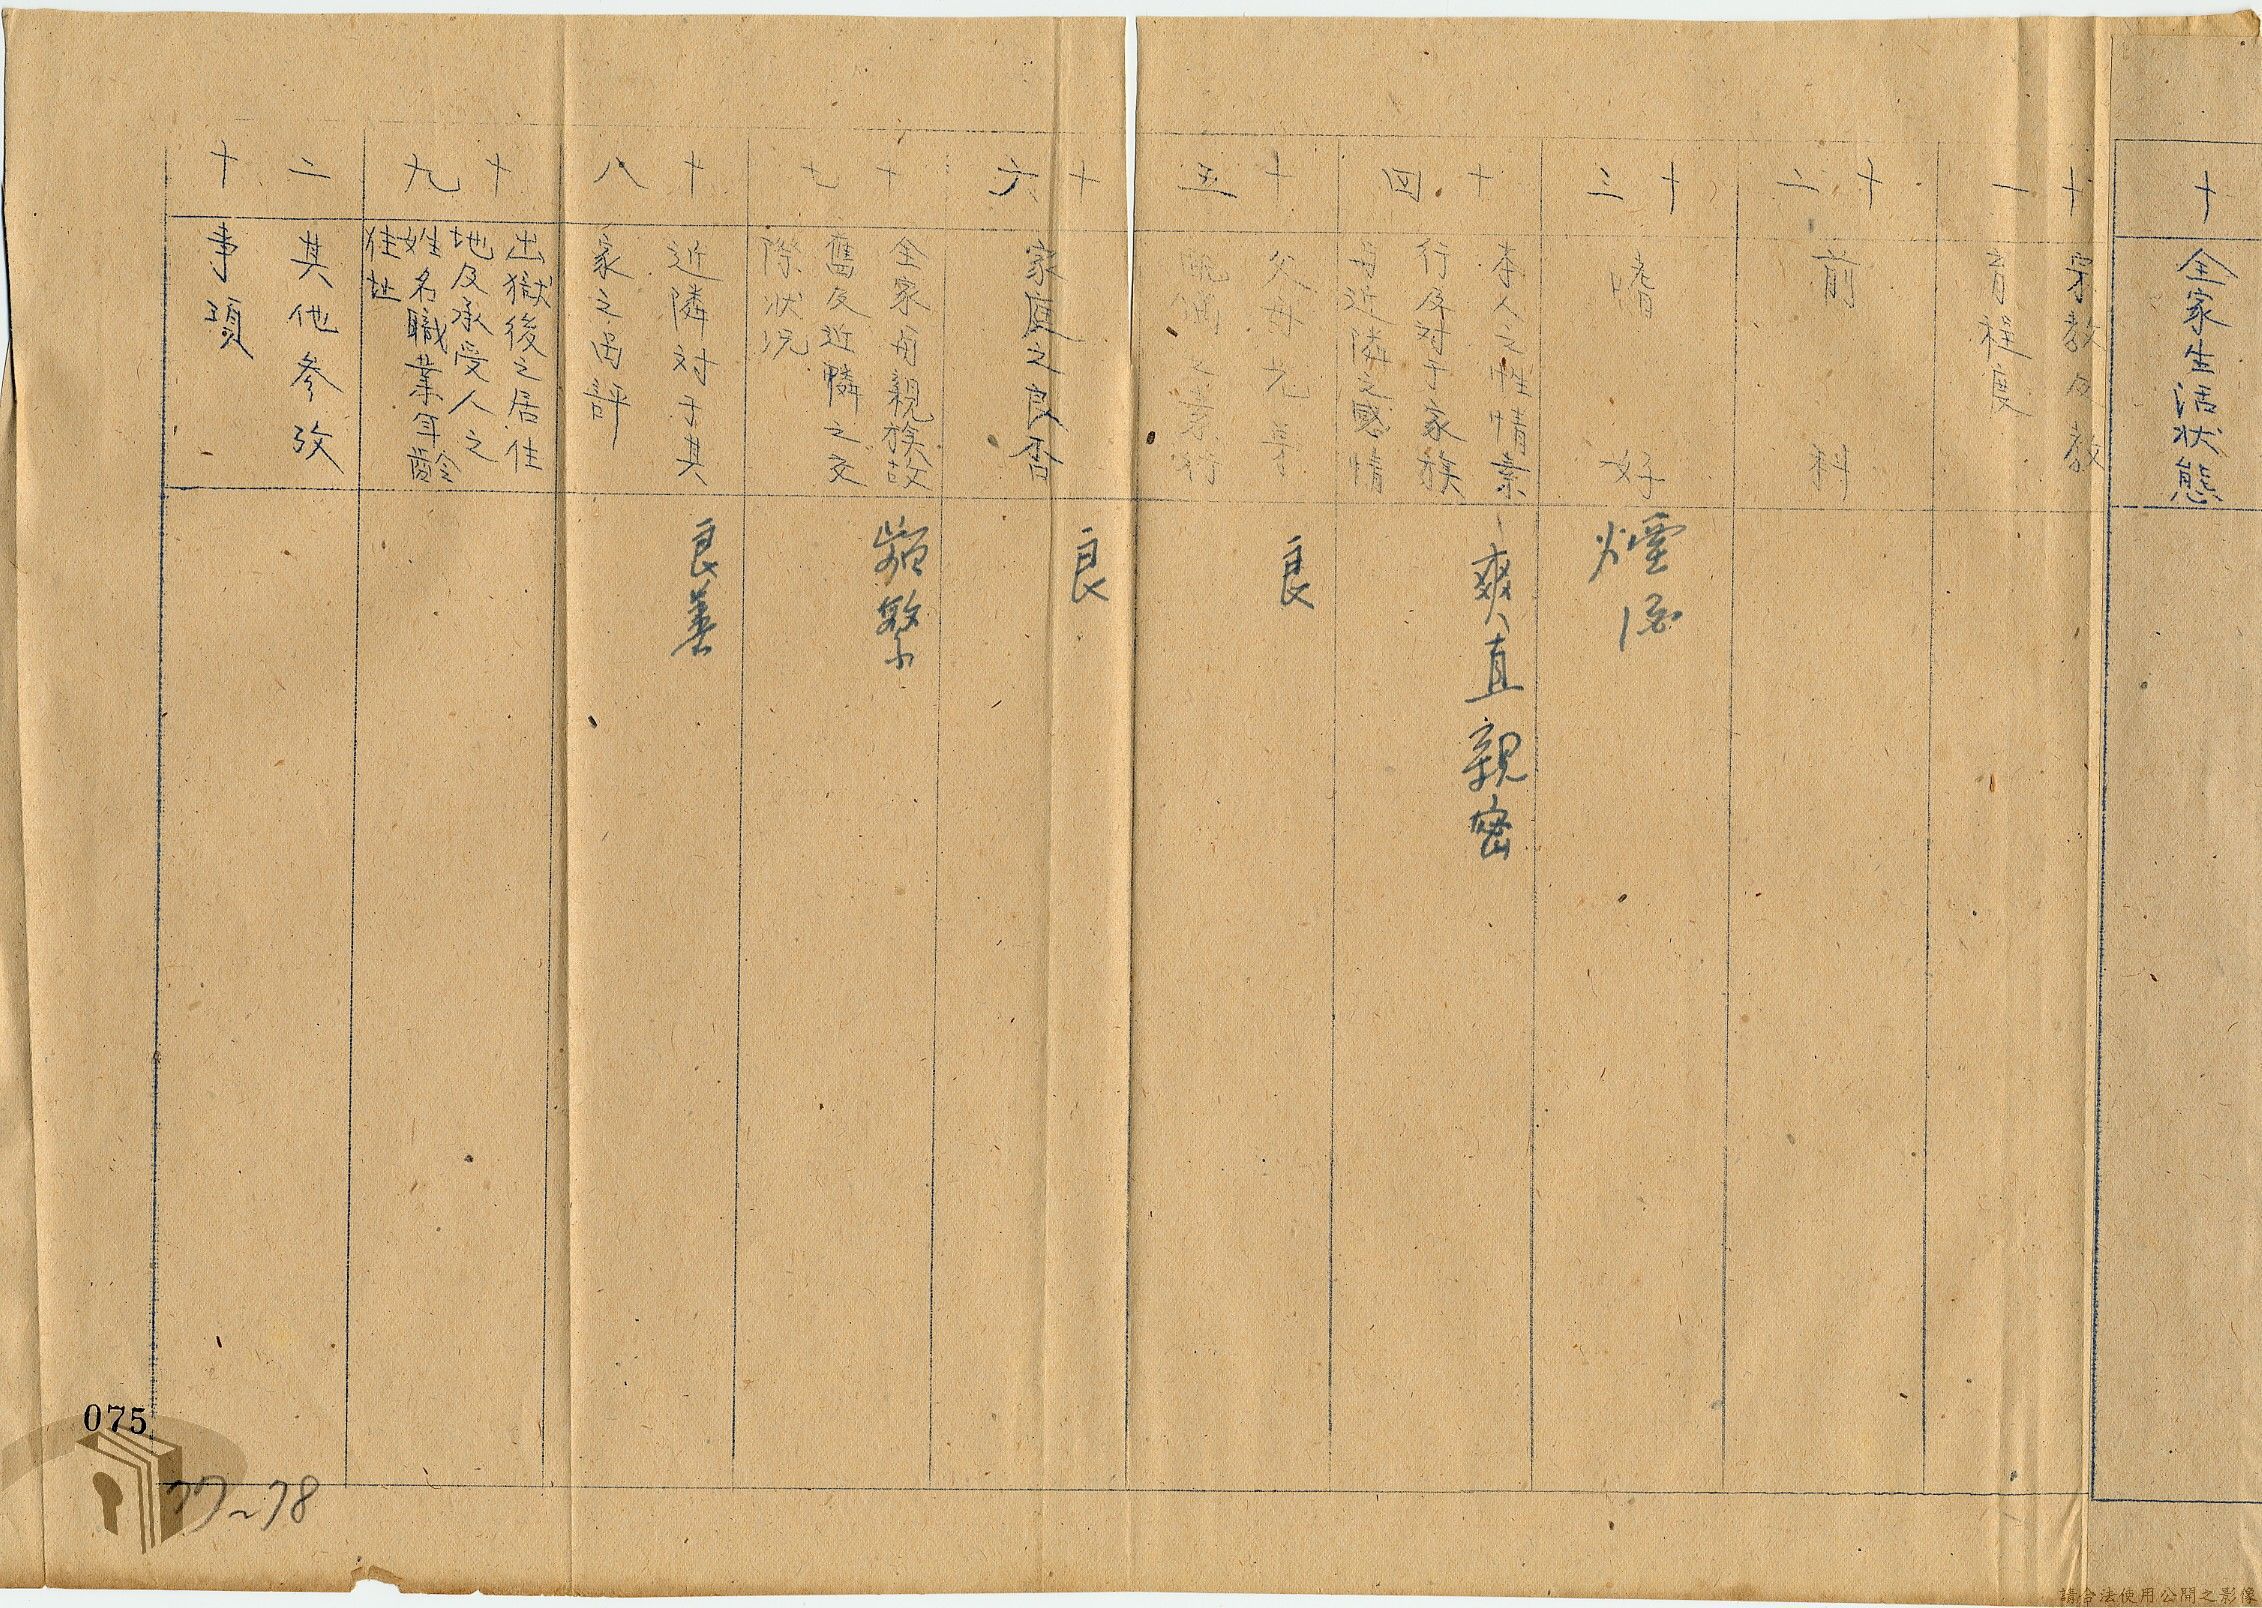 十
全家生活状態
十一
宗教及教
育程度
十二
前科
十三
嗜好
煙酒
十四
本人之性情素
行及对于家族
与近隣之感情
爽直親密
十五
父母兄弟
配偶之素行
良
十六
家庭之良否
良
十七
全家与親族故
舊及近憐之交
際状况
頻繁
十八
近隣对于其
家之面評
良善
十九
出獄後之居住
地及承受人之
姓名職業年齡
住址
二十
其他参攷
事項
075
77~78
請合法使用公開之影像